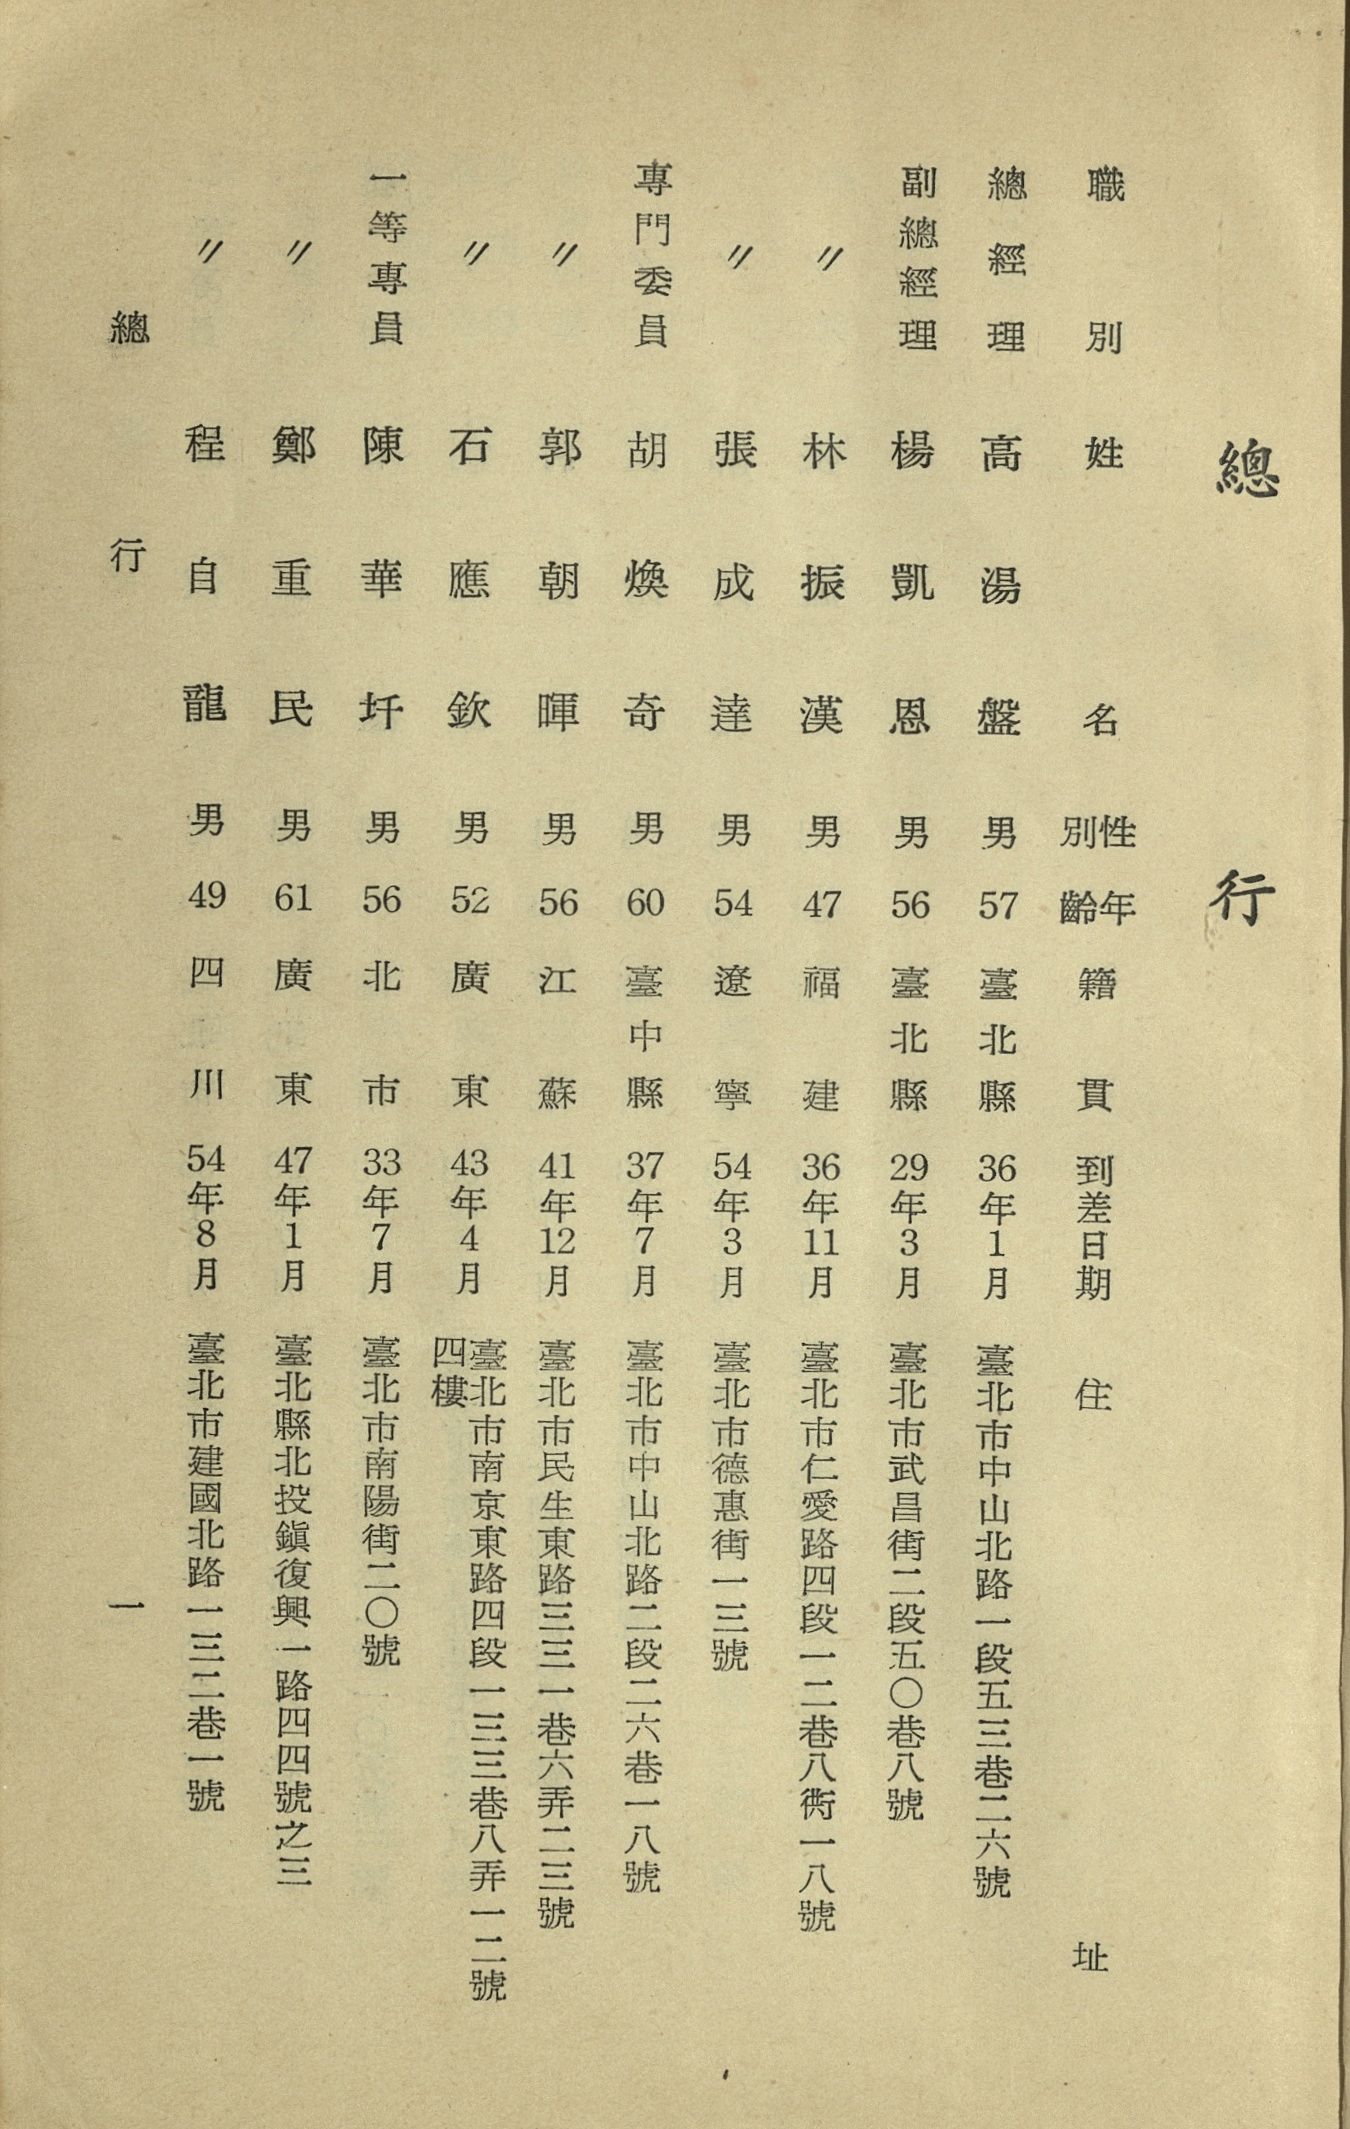 總行
職別 姓名 性別 年齡 籍貫 到差日期 住址
總經理 高湯盤 男 57 臺北縣 36年1月 臺北市中山北路一段五三巷二六號
副總經理 楊凱恩 男 56 臺北縣 29年3月 臺北市武昌街二段五〇巷八號
〃 林振漢 男 47 福建 36年11月 臺北市仁愛路四段一二巷八衖一八號
〃 張成達 男 54 遼寧 54年3月 臺北市德惠街一三號
專門委員 胡煥奇 男 60 臺中縣 37年7月 臺北市中山北路二段二六巷一八號
〃 郭朝暉 男 56 江蘇 41年12月 臺北市民生東路三三一巷六弄二三號
〃 石應欽 男 52 廣東 43年4月 臺北市南京東路四段一三三巷八弄一二號
四樓
一等專員 陳華圩 男 56 北市 33年7月 臺北市南陽街二〇號
〃 鄭重民 男 61 廣東 47年1月 臺北縣北投鎮復興一路四四號之三
〃 程自龍 男 49 四川 54年8月 臺北市建國北路一三二巷一號
總行 一